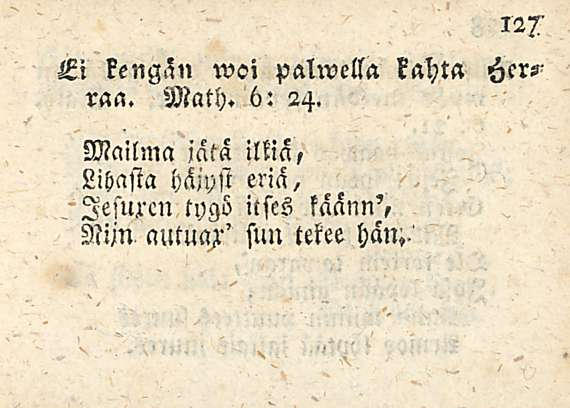 127.
Ei kengän woi palwella kahta Her⸗
raa. Math. 6: 24.
Mailma jätä ilkiä,
Lihasta häijyst eriä,
Jesuxen tygö itses käänn',
Nijn autuax' sun tekee hän.